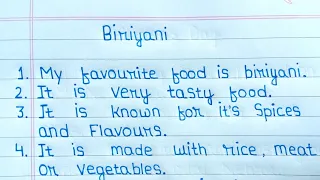 Biriyani
1. My favourite food is biriyani.
2. It is very tasty food.
3. It is known for it's Spices
and Flavours.
4. It is made with rice, meat
or vegetables.